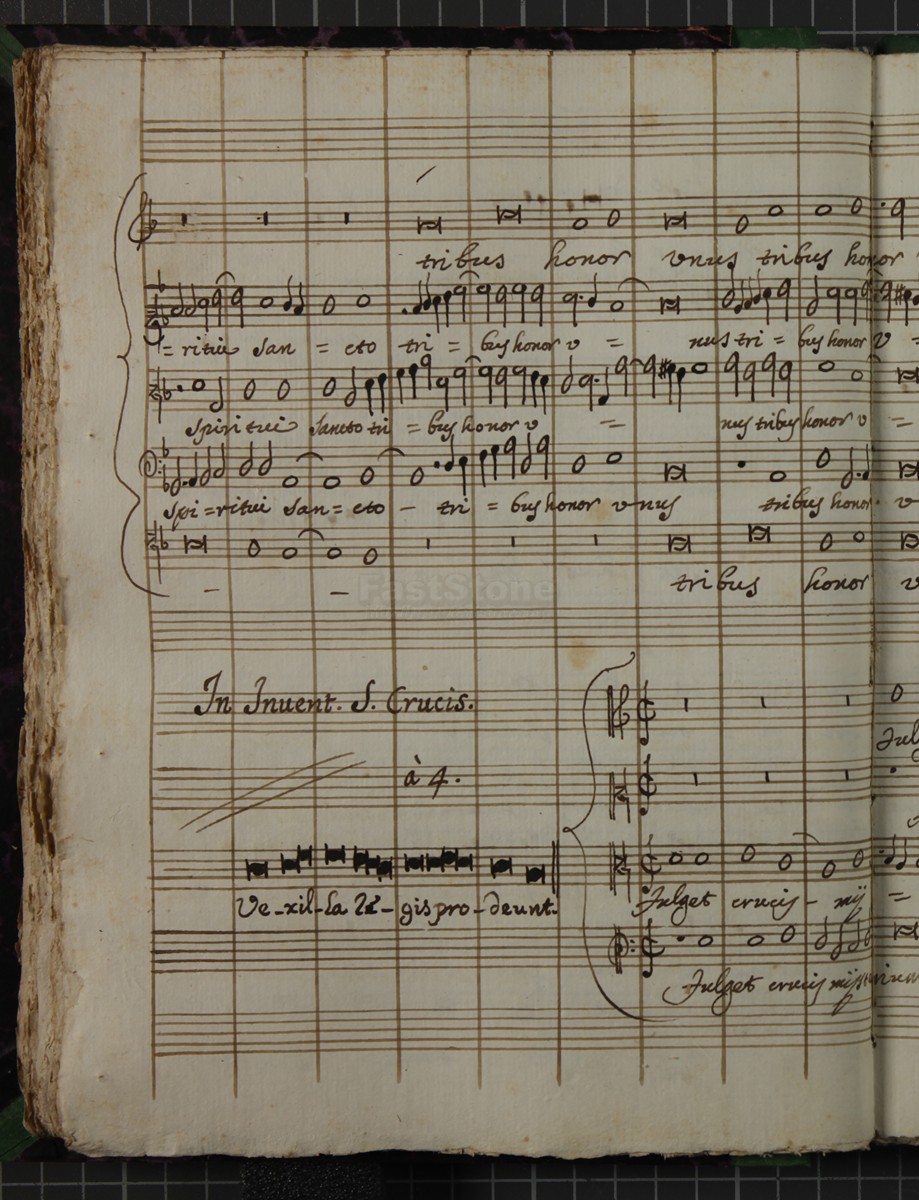 tribus honor vnus tribus honor
= ritui San = cto tri = bus honor v = nus tri = bus honor v =
Spiritui Sancto tri = bus honor v = nus tribus honor v =
Spi = ritui San = cto - tri = bus honor vnus tribus honor v
FastStone
- - tribus honor v
In Inuent. S. Crucis.
à 4.
Ve-xil-la Re-gis pro-deunt.
Fulget crucis - mij =
Fulget crucis